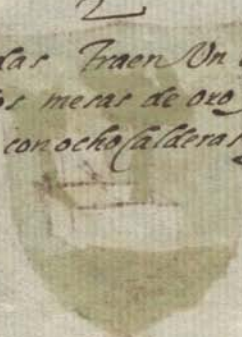 2
das Traen Vn
os mesas de oro y
con ocho Calderas